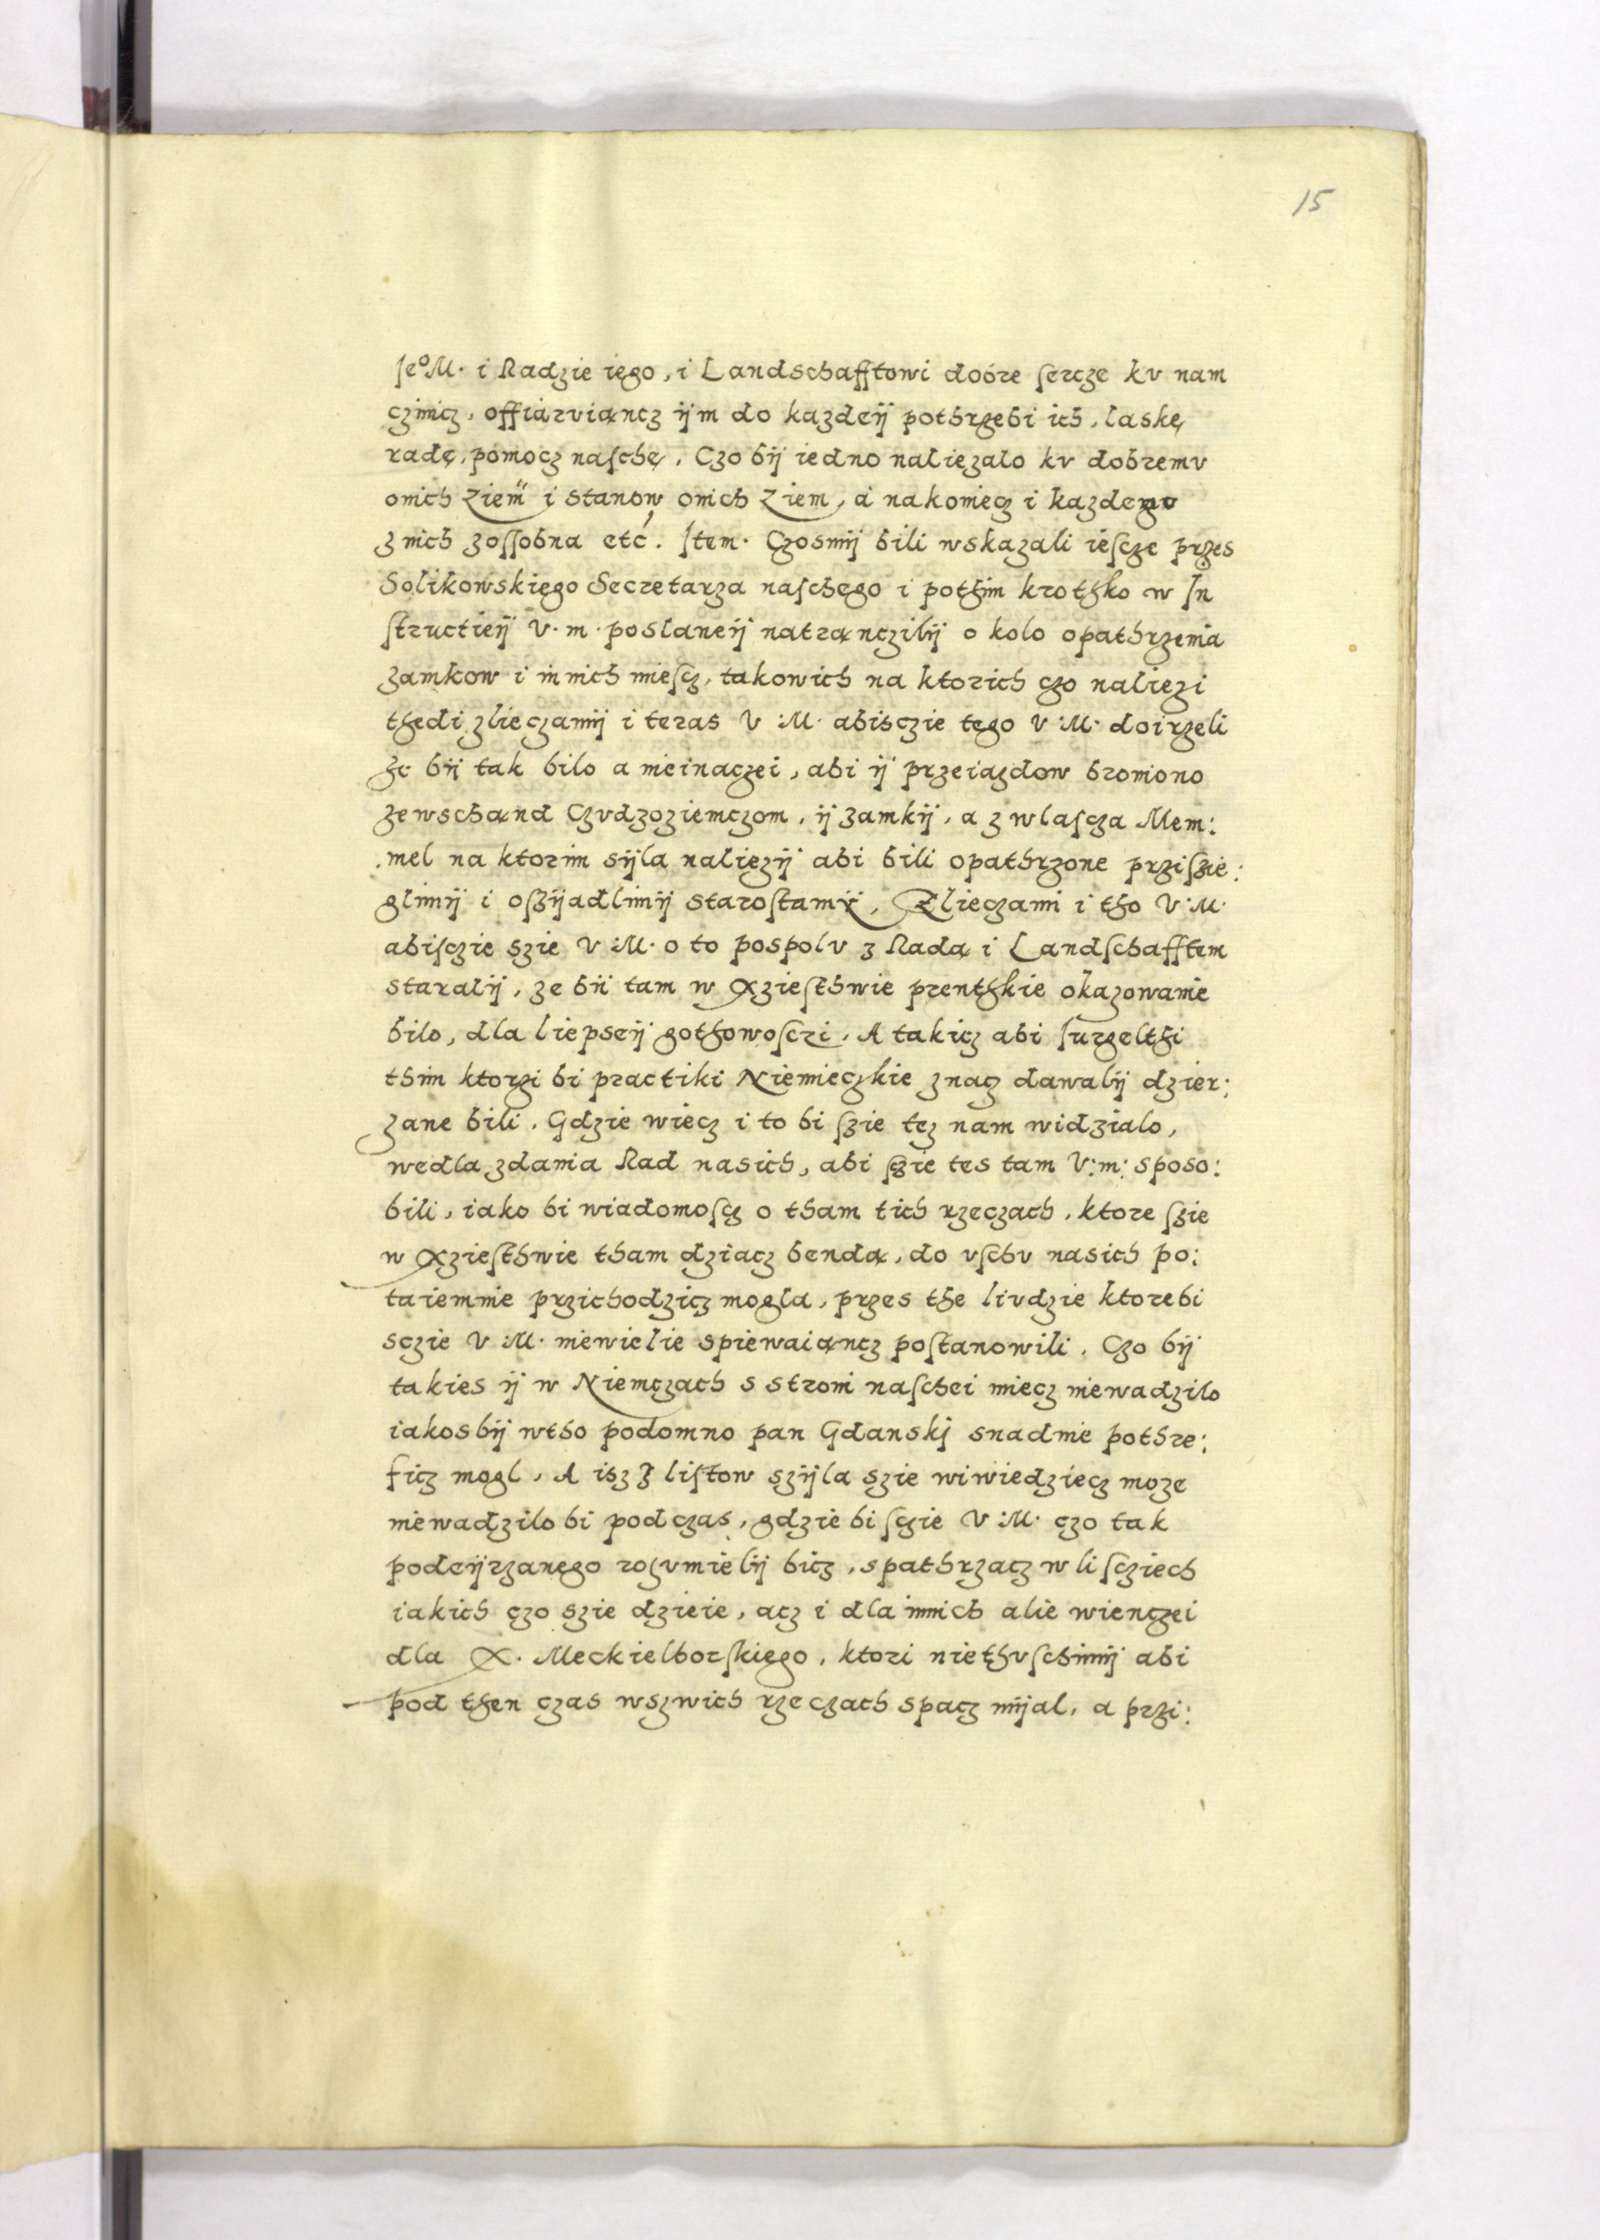 15
Je⁰M. i Radzie iego, i Landschafftowi dobre sercze kv nam
czinicz, offiarviąncz ijm do kazdeij pothrzebi ich, laskę
radę, pomocz naschę, Czo bij iedno naliezalo kv dobremv
onich Ziem i stanow onich Ziem, a nakoniecz i kazdemv
z nich zossobna etc. Item. Czosmij bili wskazali iescze przes
Solikowskiego Secretarza naschego i pothim krothko w In
structieij V. m. poslaneij natrąnczilij o kolo opathrzenia
zamkow i innich miescz, takowich na ktorich czo naliezi
thedi zlieczamij i teras V.M. abisczie tego V.M. doirzeli
ze bij tak bilo a nieinaczei, abi ij przeiazdow broniono
zewschąnd Czvdzoziemczom, ij zamkij, a zwlascza Mem:
mel na ktorim sijla naliezij abi bili opathrzone prziszie:
glimij i oszijadlimij starostamij, Zlieczami i tho V.M.
abisczie szie V.M. o to pospolv z Radą i Landschafftem
staralij, ze bij tam w Xziesthwie prenthkie okazowanie
bilo, dla liepseij gothowosczi. A takicz abi Jurgelthi
thim ktorzi bi practiki Niemieczkie znacz dawalij dzier:
zane bili. Gdzie wiecz i to bi szie tez nam widzialo,
wedla zdania Rad nasich, abi szie tes tam V:m: sposo:
bili, iako bi wiadomoscz o tham tich rzeczach, ktore szie
w Xziesthwie tham dziacz bendą, do vschv nasich po:
taiemnie przichodzicz mogla, przes the livdzie ktorebi
sczie V.M. niewielie spiewaiąncz postanowili. Czo bij
takies ij w Niemczach s stroni naschei miecz niewadzilo
iakosbij wtho podomno pan Gdanski snadnie pothre:
ficz mogl, A isz z listow szijla szie wiwiedziecz moze
niewadzilo bi podczas, gdzie bi sczie V.M. czo tak
podeijrzanego rozvmielij bicz, spathrzacz w lisciech
iakich czo szie dzieie, acz i dla innich alie wienczei
dla X. Meckielborskiego, ktori niethvschimij abi
pod then czas wszwich rzeczach spacz mijal, a przi: